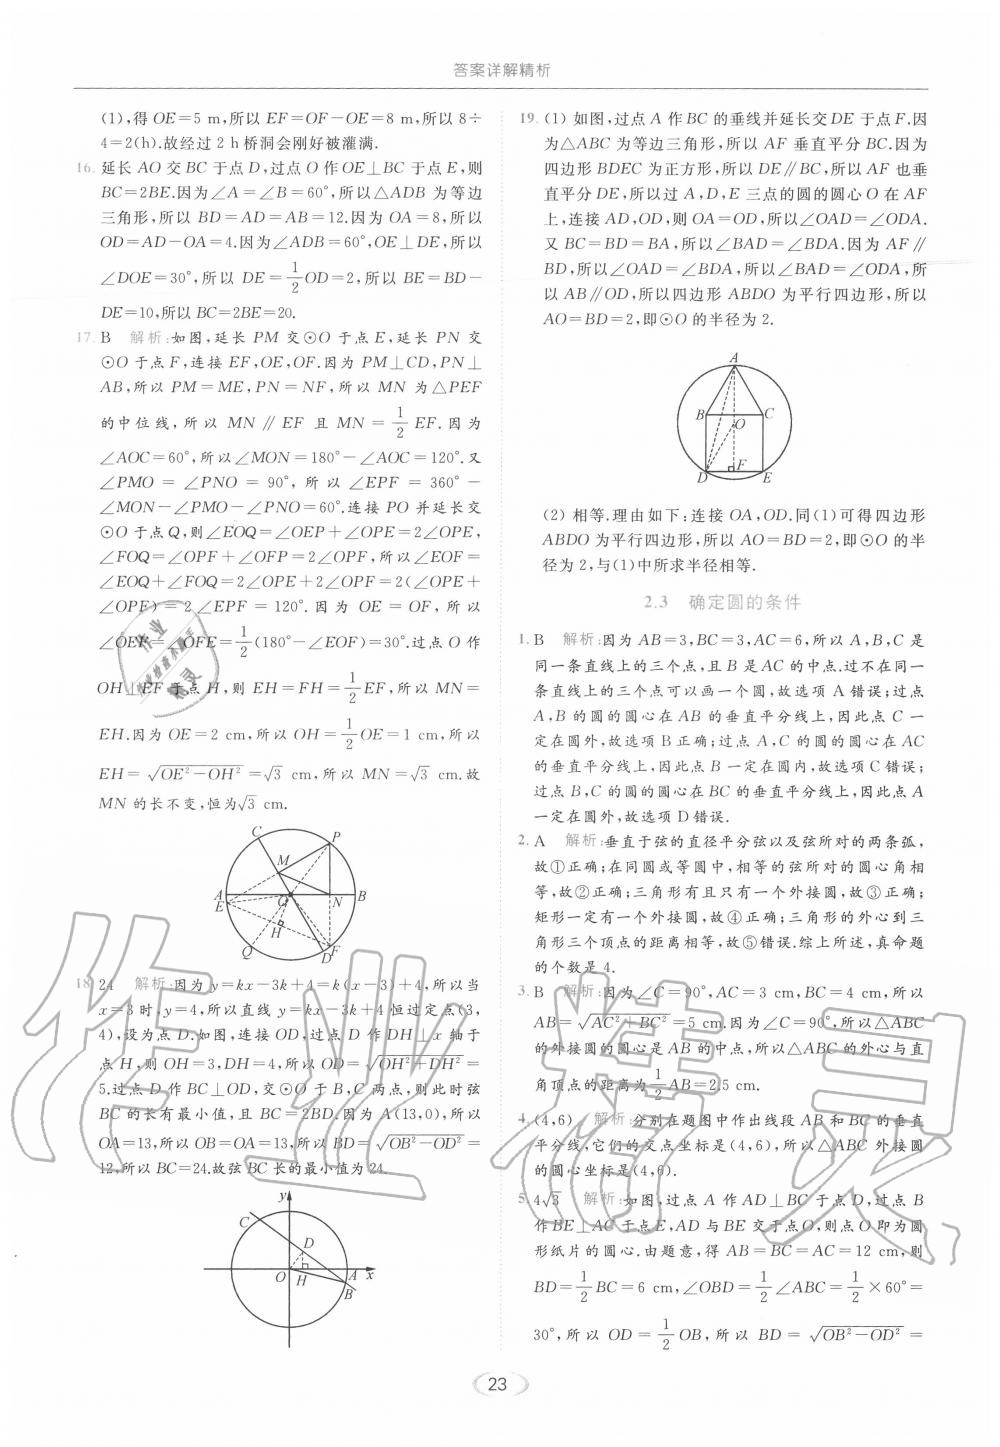 答案详解精析
(1),得 OE=5 m,所以 EF=OF-OE=8 m,所以 8÷
4=2(h).故经过 2 h 桥洞会刚好被灌满.
16. 延长 AO 交 BC 于点 D,过点 O 作 OE⊥BC 于点 E,则
BC=2BE.因为∠A=∠B=60°,所以△ADB 为等边
三角形,所以 BD=AD=AB=12.因为 OA=8,所以
OD=AD-OA=4.因为∠ADB=60°,OE⊥DE,所以
∠DOE=30°,所以 DE=1/2OD=2,所以 BE=BD-
DE=10,所以 BC=2BE=20.
17. B 解析:如图,延长 PM 交⊙O 于点 E,延长 PN 交
⊙O 于点 F,连接 EF,OE,OF.因为 PM⊥CD,PN⊥
AB,所以 PM=ME,PN=NF,所以 MN 为△PEF
的中位线,所以 MN∥EF 且 MN=1/2EF.因为
∠AOC=60°,所以∠MON=180°-∠AOC=120°.又
∠PMO=∠PNO=90°,所以∠EPF=360°-
∠MON-∠PMO-∠PNO=60°.连接 PO 并延长交
⊙O 于点 Q,则∠EOQ=∠OEP+∠OPE=2∠OPE,
∠FOQ=∠OPF+∠OFP=2∠OPF,所以∠EOF=
∠EOQ+∠FOQ=2∠OPE+2∠OPF=2(∠OPE+
∠OPF)=2∠EPF=120°.因为 OE=OF,所以
∠OEF=∠OFE=1/2(180°-∠EOF)=30°.过点 O 作
OH⊥EF 于点 H,则 EH=FH=1/2EF,所以 MN=
EH.因为 OE=2 cm,所以 OH=1/2OE=1 cm,所以
EH=√(OE²-OH²)=√3 cm,所以 MN=√3 cm.故
MN 的长不变,恒为√3 cm.
C
P
M
A
E
O
N
B
H
Q
D
F
18. 24 解析:因为 y=kx-3k+4=k(x-3)+4,所以当
x=3 时,y=4,所以直线 y=kx-3k+4 恒过定点(3,
4),设为点 D.如图,连接 OD,过点 D 作 DH⊥x 轴于
点 H,则 OH=3,DH=4,所以 OD=√(OH²+DH²)=
5.过点 D 作 BC⊥OD,交⊙O 于 B,C 两点,则此时弦
BC 的长有最小值,且 BC=2BD.因为 A(13,0),所以
OA=13,所以 OB=OA=13,所以 BD=√(OB²-OD²)=
12,所以 BC=24.故弦 BC 长的最小值为 24.
y
C
D
O
H
A
x
B
19. (1) 如图,过点 A 作 BC 的垂线并延长交 DE 于点 F.因
为△ABC 为等边三角形,所以 AF 垂直平分 BC.因为
四边形 BDEC 为正方形,所以 DE∥BC,所以 AF 也垂
直平分 DE,所以过 A,D,E 三点的圆的圆心 O 在 AF
上,连接 AD,OD,则 OA=OD,所以∠OAD=∠ODA.
又 BC=BD=BA,所以∠BAD=∠BDA.因为 AF∥
BD,所以∠OAD=∠BDA,所以∠BAD=∠ODA,所
以 AB∥OD,所以四边形 ABDO 为平行四边形,所以
AO=BD=2,即⊙O 的半径为 2.
A
B
C
O
D
F
E
(2) 相等.理由如下:连接 OA,OD.同(1)可得四边形
ABDO 为平行四边形,所以 AO=BD=2,即⊙O 的半
径为 2,与(1)中所求半径相等.
2.3 确定圆的条件
1. B 解析:因为 AB=3,BC=3,AC=6,所以 A,B,C 是
同一条直线上的三个点,且 B 是 AC 的中点.过不在同一
条直线上的三个点可以画一个圆,故选项 A 错误;过点
A,B 的圆的圆心在 AB 的垂直平分线上,因此点 C 一
定在圆外,故选项 B 正确;过点 A,C 的圆的圆心在 AC
的垂直平分线上,因此点 B 一定在圆内,故选项 C 错误;
过点 B,C 的圆的圆心在 BC 的垂直平分线上,因此点 A
一定在圆外,故选项 D 错误.
2. A 解析:垂直于弦的直径平分弦以及弦所对的两条弧,
故①正确;在同圆或等圆中,相等的弦所对的圆心角相
等,故②正确;三角形有且只有一个外接圆,故③正确;
矩形一定有一个外接圆,故④正确;三角形的外心到三
角形三个顶点的距离相等,故⑤错误.综上所述,真命题
的个数是 4.
3. B 解析:因为∠C=90°,AC=3 cm,BC=4 cm,所以
AB=√(AC²+BC²)=5 cm.因为∠C=90°,所以△ABC
的外接圆的圆心是 AB 的中点,所以△ABC 的外心与直
角顶点的距离为1/2AB=2.5 cm.
4. (4,6) 解析:分别在题图中作出线段 AB 和 BC 的垂直
平分线,它们的交点坐标是(4,6),所以△ABC 外接圆
的圆心坐标是(4,6).
5. 4√3 解析:如图,过点 A 作 AD⊥BC 于点 D,过点 B
作 BE⊥AC 于点 E,AD 与 BE 交于点 O,则点 O 即为圆
形纸片的圆心.由题意,得 AB=BC=AC=12 cm,则
BD=1/2BC=6 cm,∠OBD=1/2∠ABC=1/2×60°=
30°,所以 OD=1/2OB,所以 BD=√(OB²-OD²)=
23
作业精灵